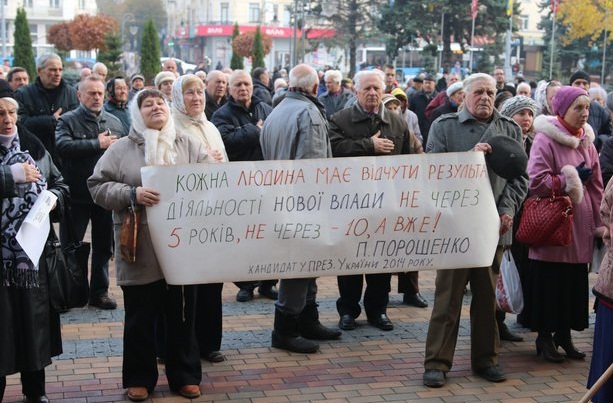 КОЖНА ЛЮДИНА МАЄ ВІДЧУТИ РЕЗУЛЬТАТ
ДІЯЛЬНОСТІ НОВОЇ ВЛАДИ НЕ ЧЕРЕЗ
5 РОКІВ, НЕ ЧЕРЕЗ - 10, А ВЖЕ!
П. ПОРОШЕНКО
КАНДИДАТ У ПРЕЗ. УКРАЇНИ 2014 РОКУ.